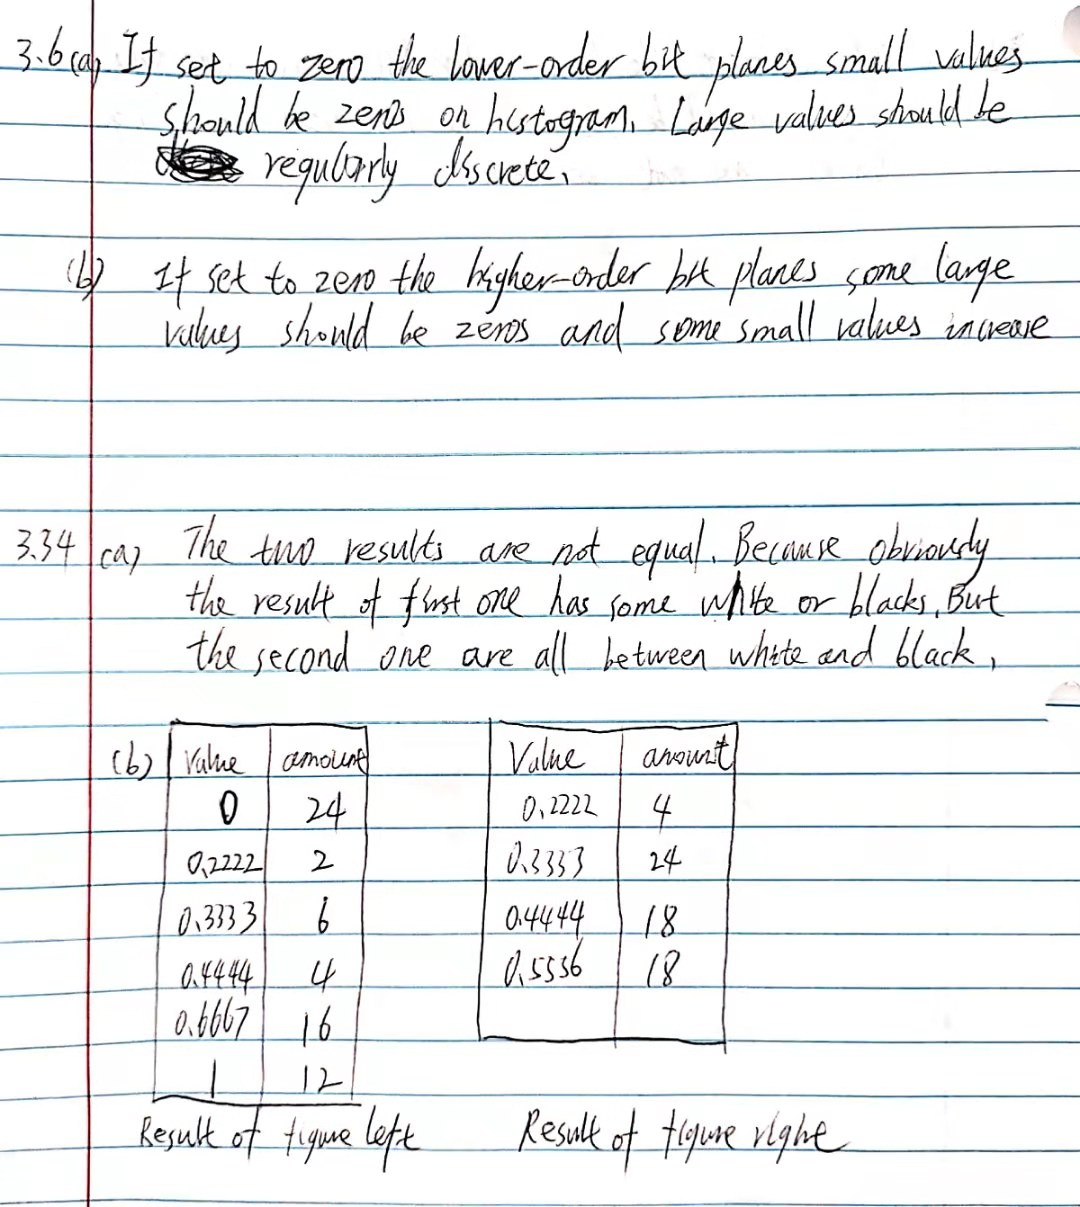 3.6 (a) If set to zero the lower-order bit planes small values
should be zeros on histogram. Large values should be
regularly discrete.
(b) If set to zero the higher-order bit planes some large
values should be zeros and some small values increase
3.34 (a) The two results are not equal. Because obviously
the result of first one has some white or blacks. But
the second one are all between white and black.
(b) Value amount Value amount
0 24 0.2222 4
0.2222 2 0.3333 24
0.3333 6 0.4444 18
0.4444 4 0.5556 18
0.6667 16
1 12
Result of figure left Result of figure right